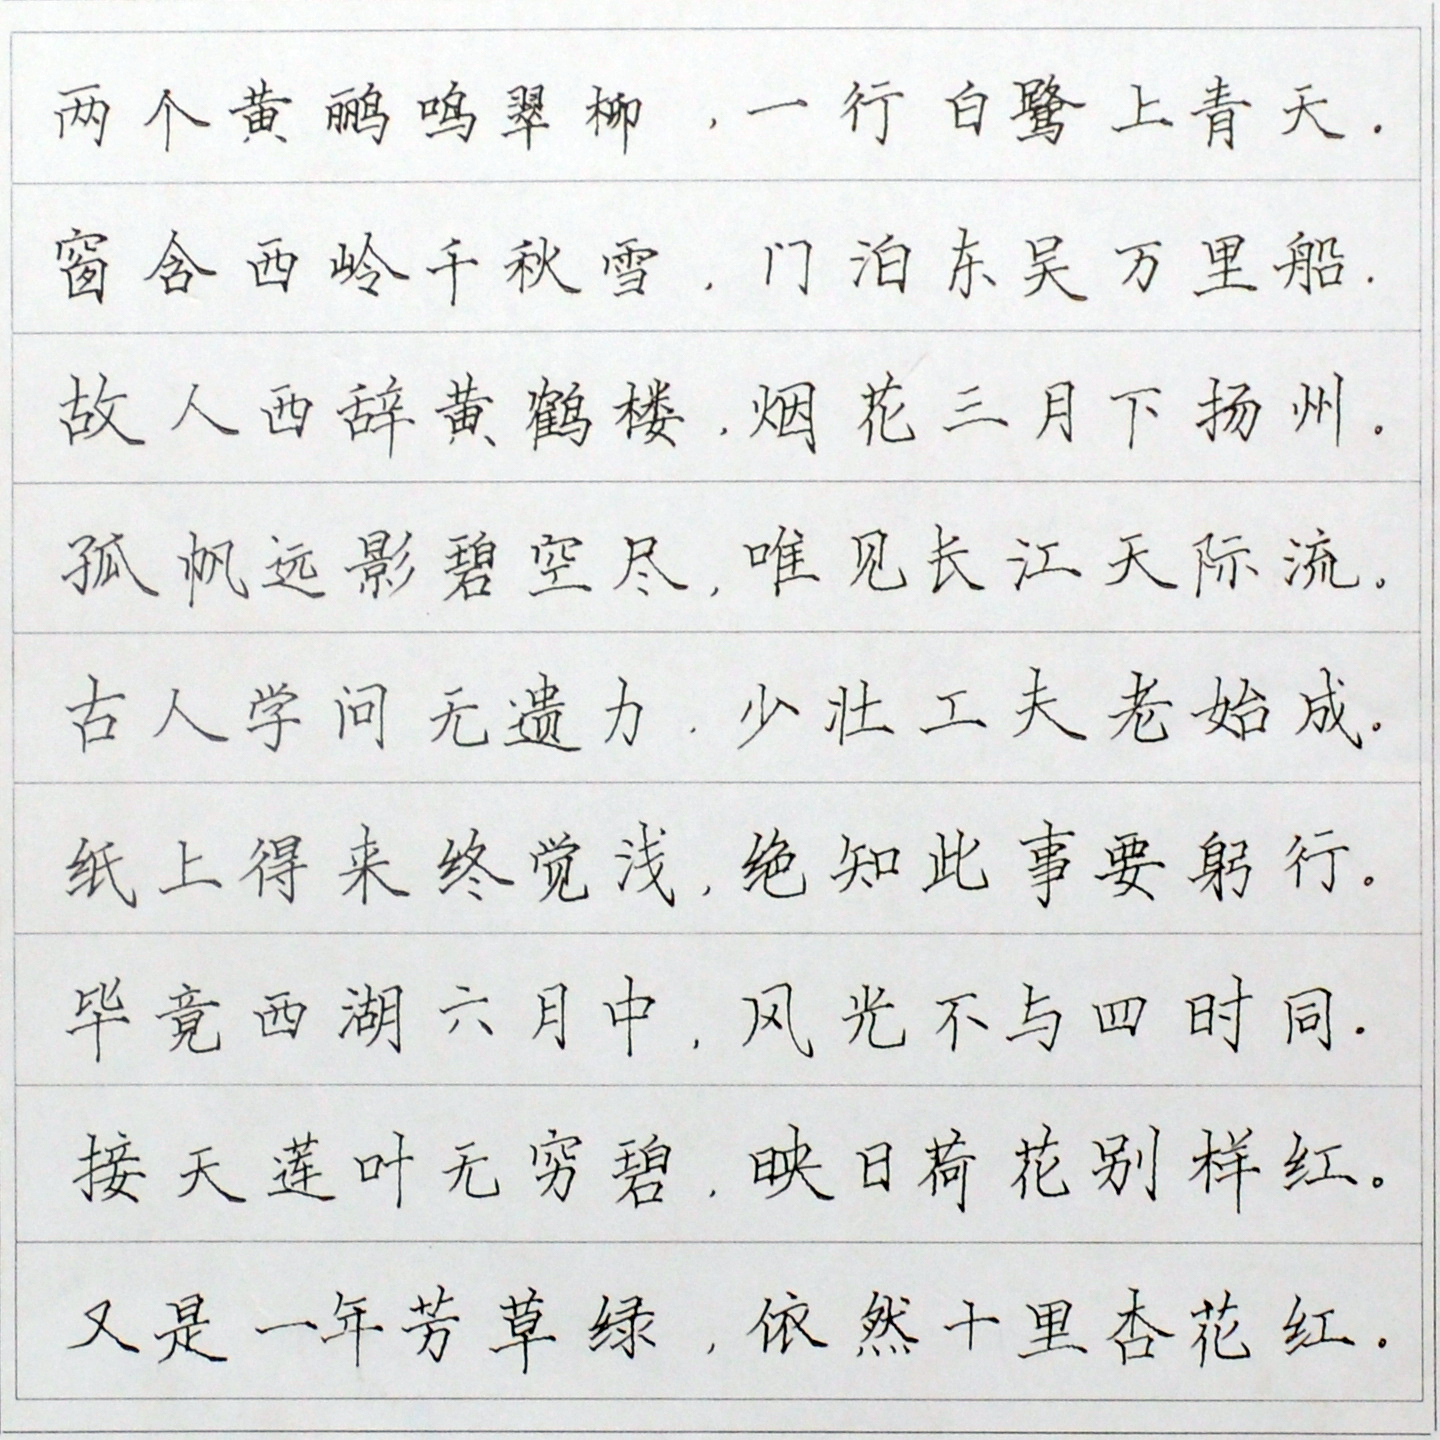 两个黄鹂鸣翠柳，一行白鹭上青天。
窗含西岭千秋雪，门泊东吴万里船。
故人西辞黄鹤楼，烟花三月下扬州。
孤帆远影碧空尽，唯见长江天际流。
古人学问无遗力，少壮工夫老始成。
纸上得来终觉浅，绝知此事要躬行。
毕竟西湖六月中，风光不与四时同。
接天莲叶无穷碧，映日荷花别样红。
又是一年芳草绿，依然十里杏花红。